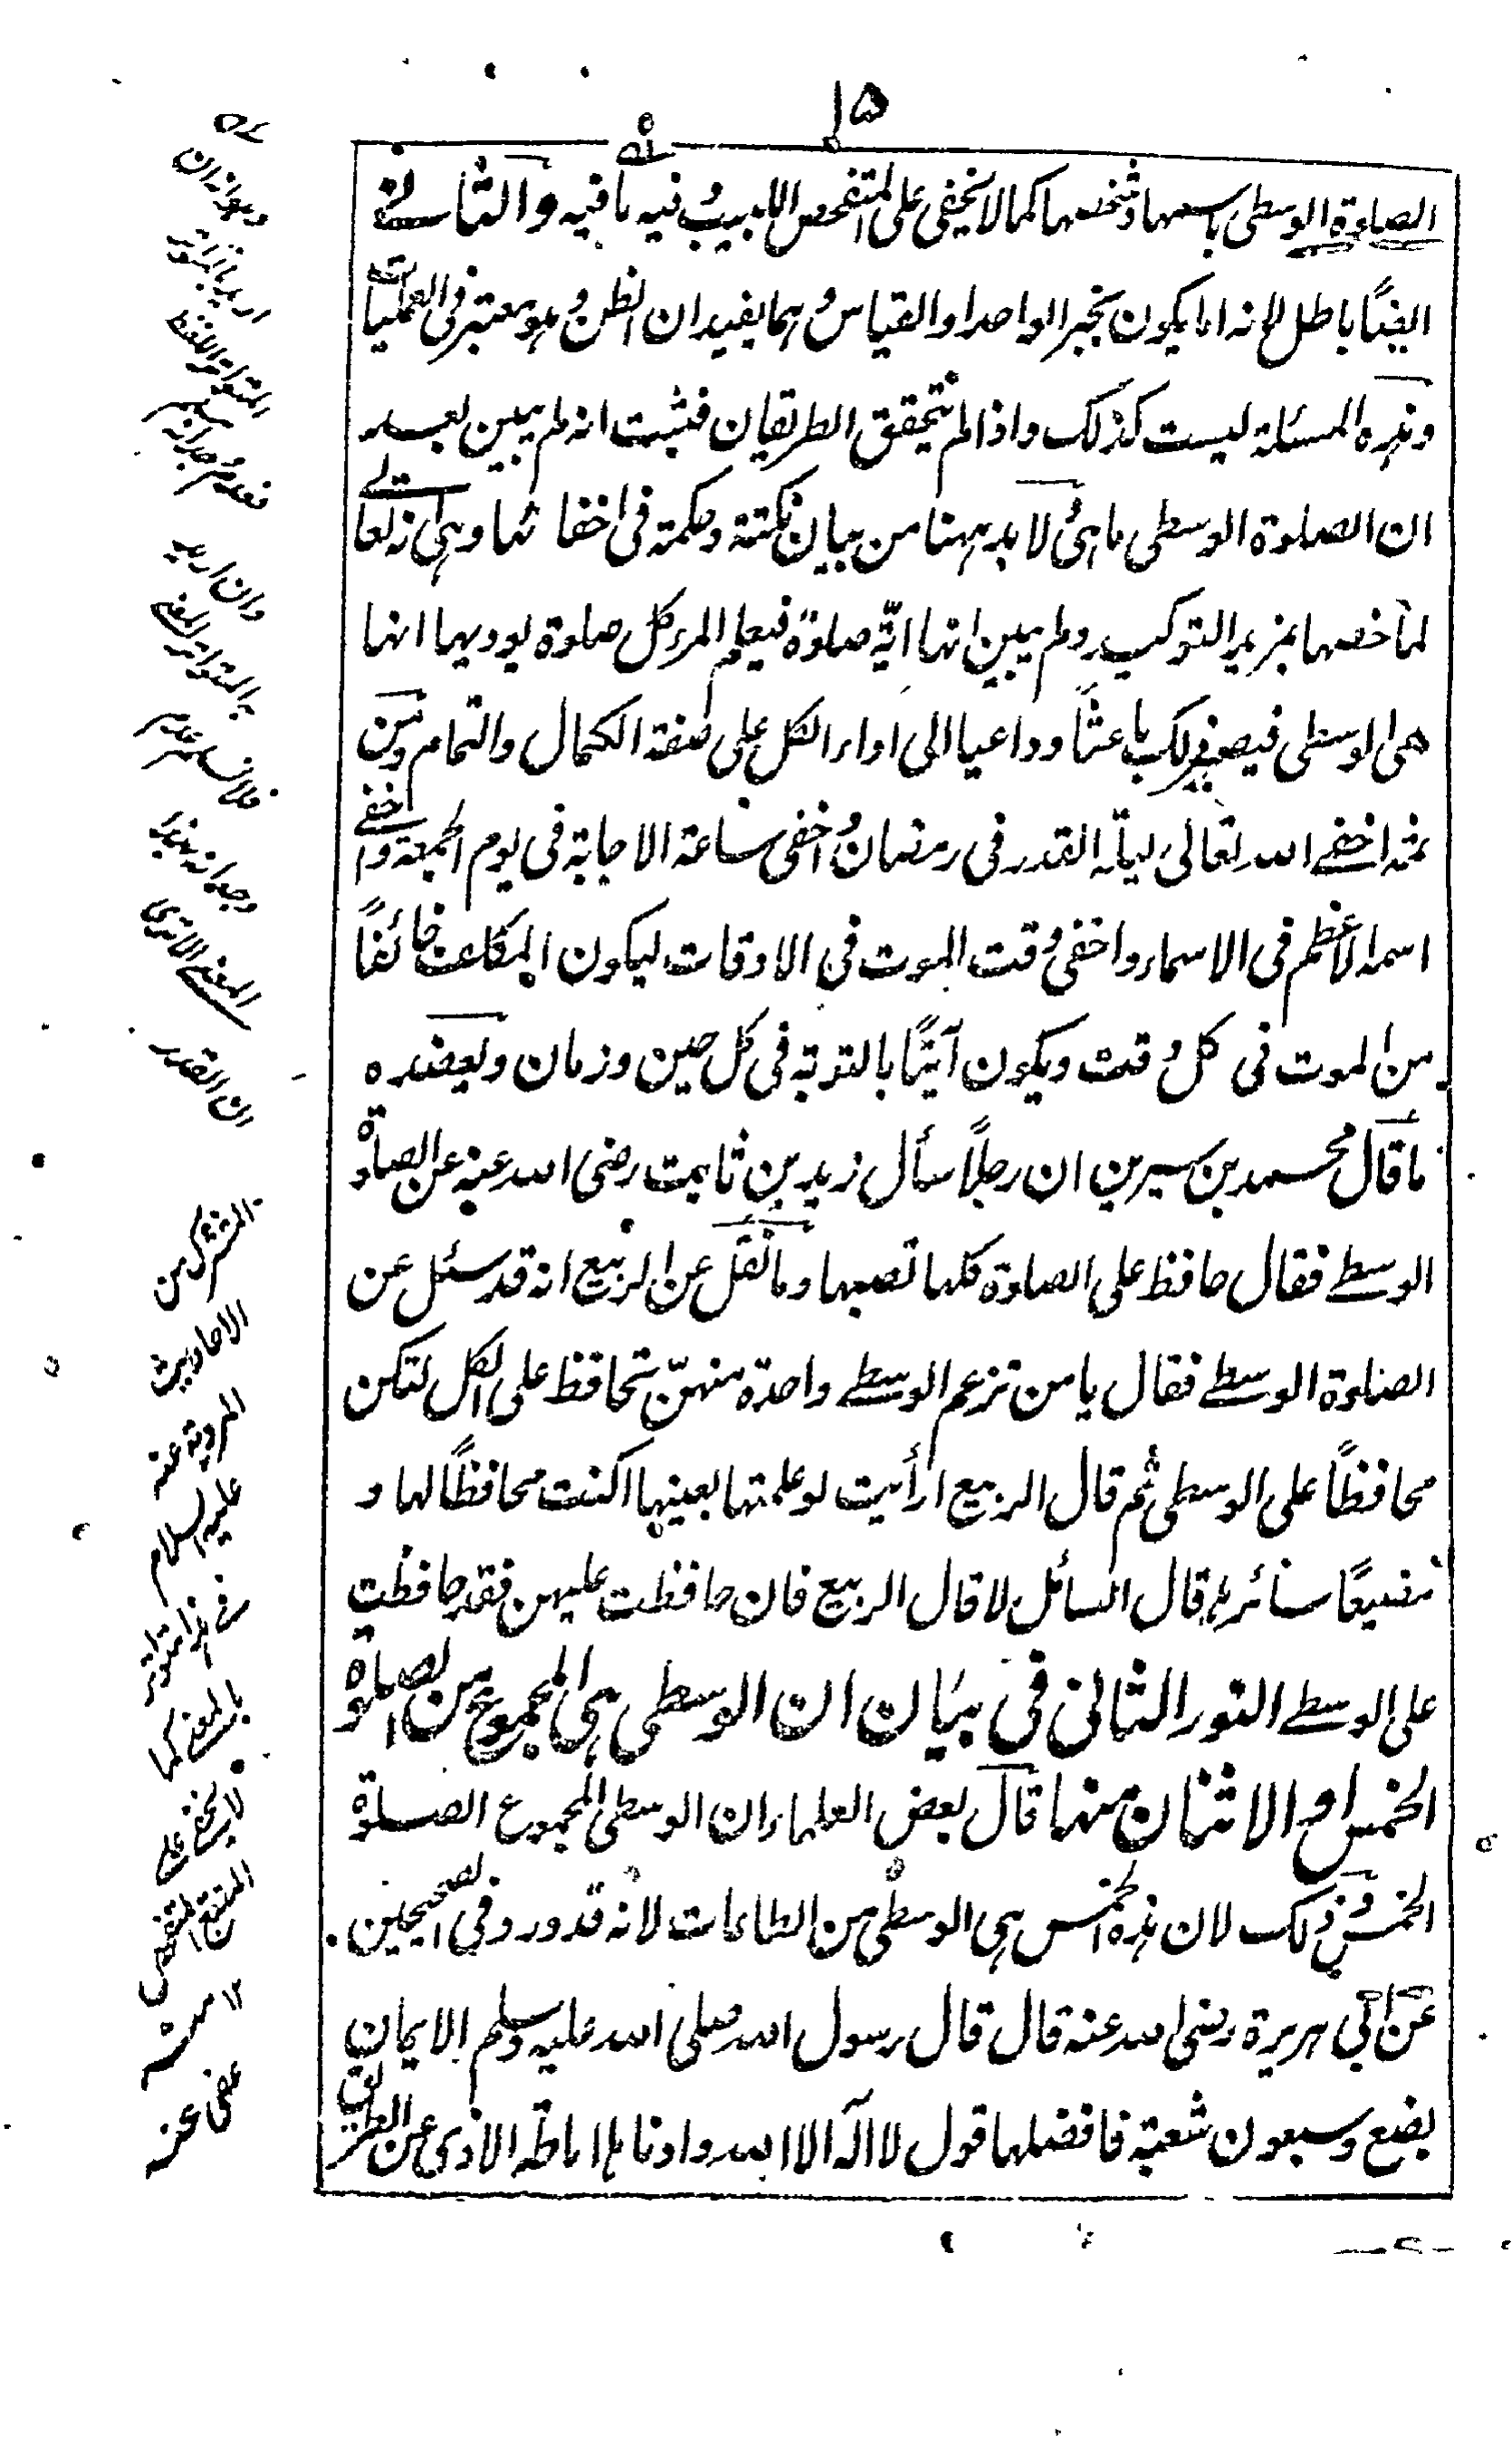 ۱۵
الصلوة الوسطى باسمها وشخصها كما لا يخفى على المتفحص اللبيب وفيه ما فيه والثاني
ايضًا باطل لانه اما يكون بخبر الواحد او القياس وهما يفيدان الظن وهو معتبر فى العمليات
وهذه المسئلة ليست كذلك واذا لم يتحقق الطريقان فثبت انه لم يبين بعد
ان الصلوة الوسطى ما هى ولا بد ههنا من بيان نكتة وحكمة فى اخفائها وهى انه تعالى
لما خصها بمزيد التوكيد ولم يبين انها ايّة صلوة فيعلم المرء كل صلوة يوديها انها
هى الوسطى فيصير ذلك باعثًا وداعيا الى اداء الكل على صفة الكمال والتمام ومن
ثمه اخفى الله تعالى ليلة القدر فى رمضان واخفى ساعة الاجابة فى يوم الجمعة واخفى
اسمه الاعظم فى الاسماء واخفى وقت الموت فى الاوقات ليكون المكلف خائفًا
من الموت فى كل وقت ويكون آتيًا بالتوبة فى كل حين وزمان ويعضده
ما قال محمد بن سيرين ان رجلاً سأل زيد بن ثابت رضى الله عنه عن الصلوة
الوسطى فقال حافظ على الصلوة كلها تصبها وما نقل عن الربيع انه قد سئل عن
الصلوة الوسطى فقال يا من تزعم الوسطى واحدة منهنّ تحافظ على الكل لتكن
محافظًا على الوسطى ثم قال الربيع ارأيت لو علمتها بعينها اكنت محافظًا لها و
مضيعًا سائرها قال السائل لا قال الربيع فان حافظت عليهن فقد حافظت
على الوسطى النور الثانى فى بيان ان الوسطى هى المجموع من الصلوة
الخمس او الاثنان منها قال بعض العلماء ان الوسطى المجموع الصلوة
الخمس وذلك لان هذه الخمس هى الوسطى من الطاعات لانه قد ورد فى الصحيحين
عن ابى هريرة رضى الله عنه قال قال رسول الله صلى الله عليه وسلم الايمان
بضع وسبعون شعبة فافضلها قول لا اله الا الله وادناها اماطة الاذى عن الطريق
وهو انه ان
اريد بالتواتر
المتواتر اللفظ
فعدم وجدانه
وان اريد
التواتر المعنى
فلا نسلم عدم
وجدانه
المعنى الاترى
ان القدر
المشترك من
الاحاديث
المروية عنه
عليه السلام
فى هذا متواتر
بالمعنى كما
لا يخفى على
المتتبع المتفحص
۱۲ منه
عفى عنه